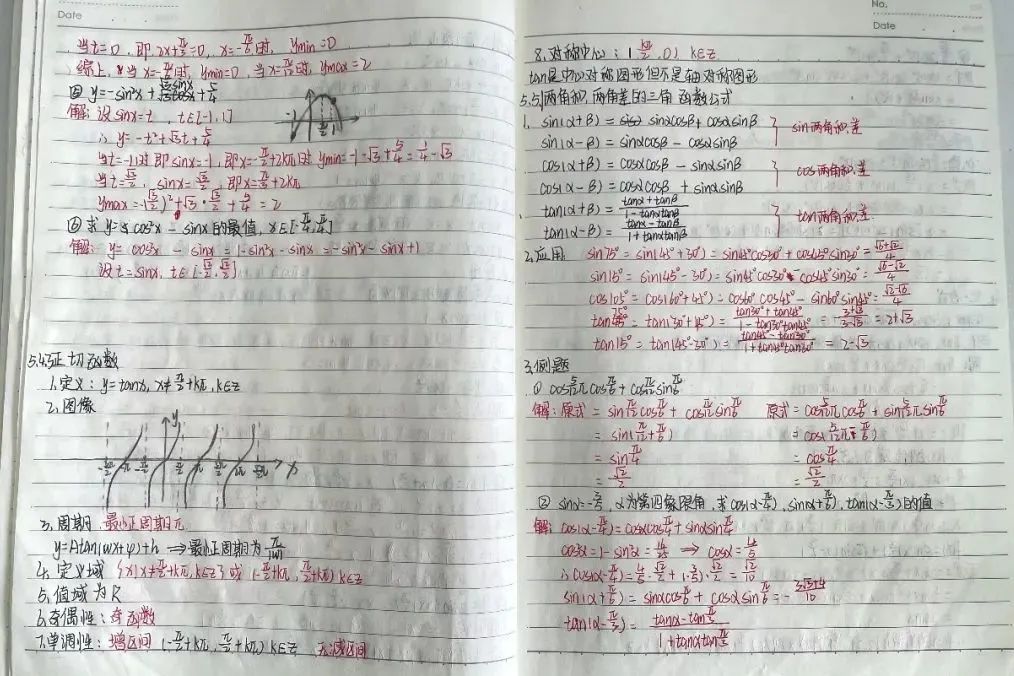 Date
当t=0,即2x+π/3=0,x=-π/6时, ymin=0
综上,当x=-π/6时,ymin=0,当x=π/12时,ymax=2
⑤ y=-sin²x+√3sinx+5/4
解:设sinx=t, t∈[-1,1]
∴ y=-t²+√3t+5/4
当t=-1时即sinx=-1,即x=-π/2+2kπ时ymin=-1-√3+5/4=1/4-√3
当t=√3/2, sinx=√3/2,即x=π/3+2kπ
ymax=-(√3/2)²+√3·√3/2+5/4=2
⑥求y=cos²x-sinx的最值,x∈[-π/4,π/4]
解: y=cos²x-sinx=1-sin²x-sinx=-sin²x-sinx+1
设t=sinx, t∈[-√2/2,√2/2]
5.4.3正切函数
1.定义:y=tanx, x≠π/2+kπ,k∈Z
2.图像
y
x
3.周期,最小正周期π
y=Atan(ωx+φ)+h ⇒最小正周期为π/|ω|
4.定义域 {x|x≠π/2+kπ,k∈Z}或(-π/2+kπ,π/2+kπ)k∈Z
5.值域为R
6.奇偶性:奇函数
7.单调性:增区间(-π/2+kπ,π/2+kπ)k∈Z 无减区间
No.
Date
8.对称中心:(kπ/2,0) k∈Z
tan是中心对称图形但不是轴对称图形
5.5.1两角和,两角差的三角函数公式
1. sin(α+β)=sinαcosβ+cosαsinβ
sin(α-β)=sinαcosβ-cosαsinβ
sin两角和.差
cos(α+β)=cosαcosβ-sinαsinβ
cos(α-β)=cosαcosβ+sinαsinβ
cos两角和.差
tan(α+β)=(tanα+tanβ)/(1-tanαtanβ)
tan(α-β)=(tanα-tanβ)/(1+tanαtanβ)
tan两角和.差
2.应用 sin75°=sin(45°+30°)=sin45°cos30°+cos45°sin30°=(√6+√2)/4
sin15°=sin(45°-30°)=sin45°cos30°-cos45°sin30°=(√6-√2)/4
cos105°=cos(60°+45°)=cos60°cos45°-sin60°sin45°=(√2-√6)/4
tan75°=tan(30°+45°)=(tan30°+tan45°)/(1-tan30°tan45°)=(3+√3)/(3-√3)=2+√3
tan15°=tan(45°-30°)=(tan45°-tan30°)/(1+tan45°tan30°)=2-√3
3.例题
① cos5/12πcosπ/6+cosπ/12sinπ/6
解:原式=sinπ/12cosπ/6+cosπ/12sinπ/6 原式=cos5/12πcosπ/6+sin5/12πsinπ/6
=sin(π/12+π/6) =cos(5/12π-π/6)
=sinπ/4 =cosπ/4
=√2/2 =√2/2
② sinα=-3/5,α为第四象限角,求cos(α-π/4),sin(α+π/6),tan(α-π/3)的值
解: cos(α-π/4)=cosαcosπ/4+sinαsinπ/4
cos²α=1-sin²α=16/25 ⇒ cosα=4/5
∴cos(α-π/4)=4/5·√2/2+(-3/5)·√2/2=√2/10
sin(α+π/6)=sinαcosπ/6+cosαsinπ/6=-(3√3+4)/10
tan(α-π/3)=(tanα-tanπ/3)/(1+tanαtanπ/3)